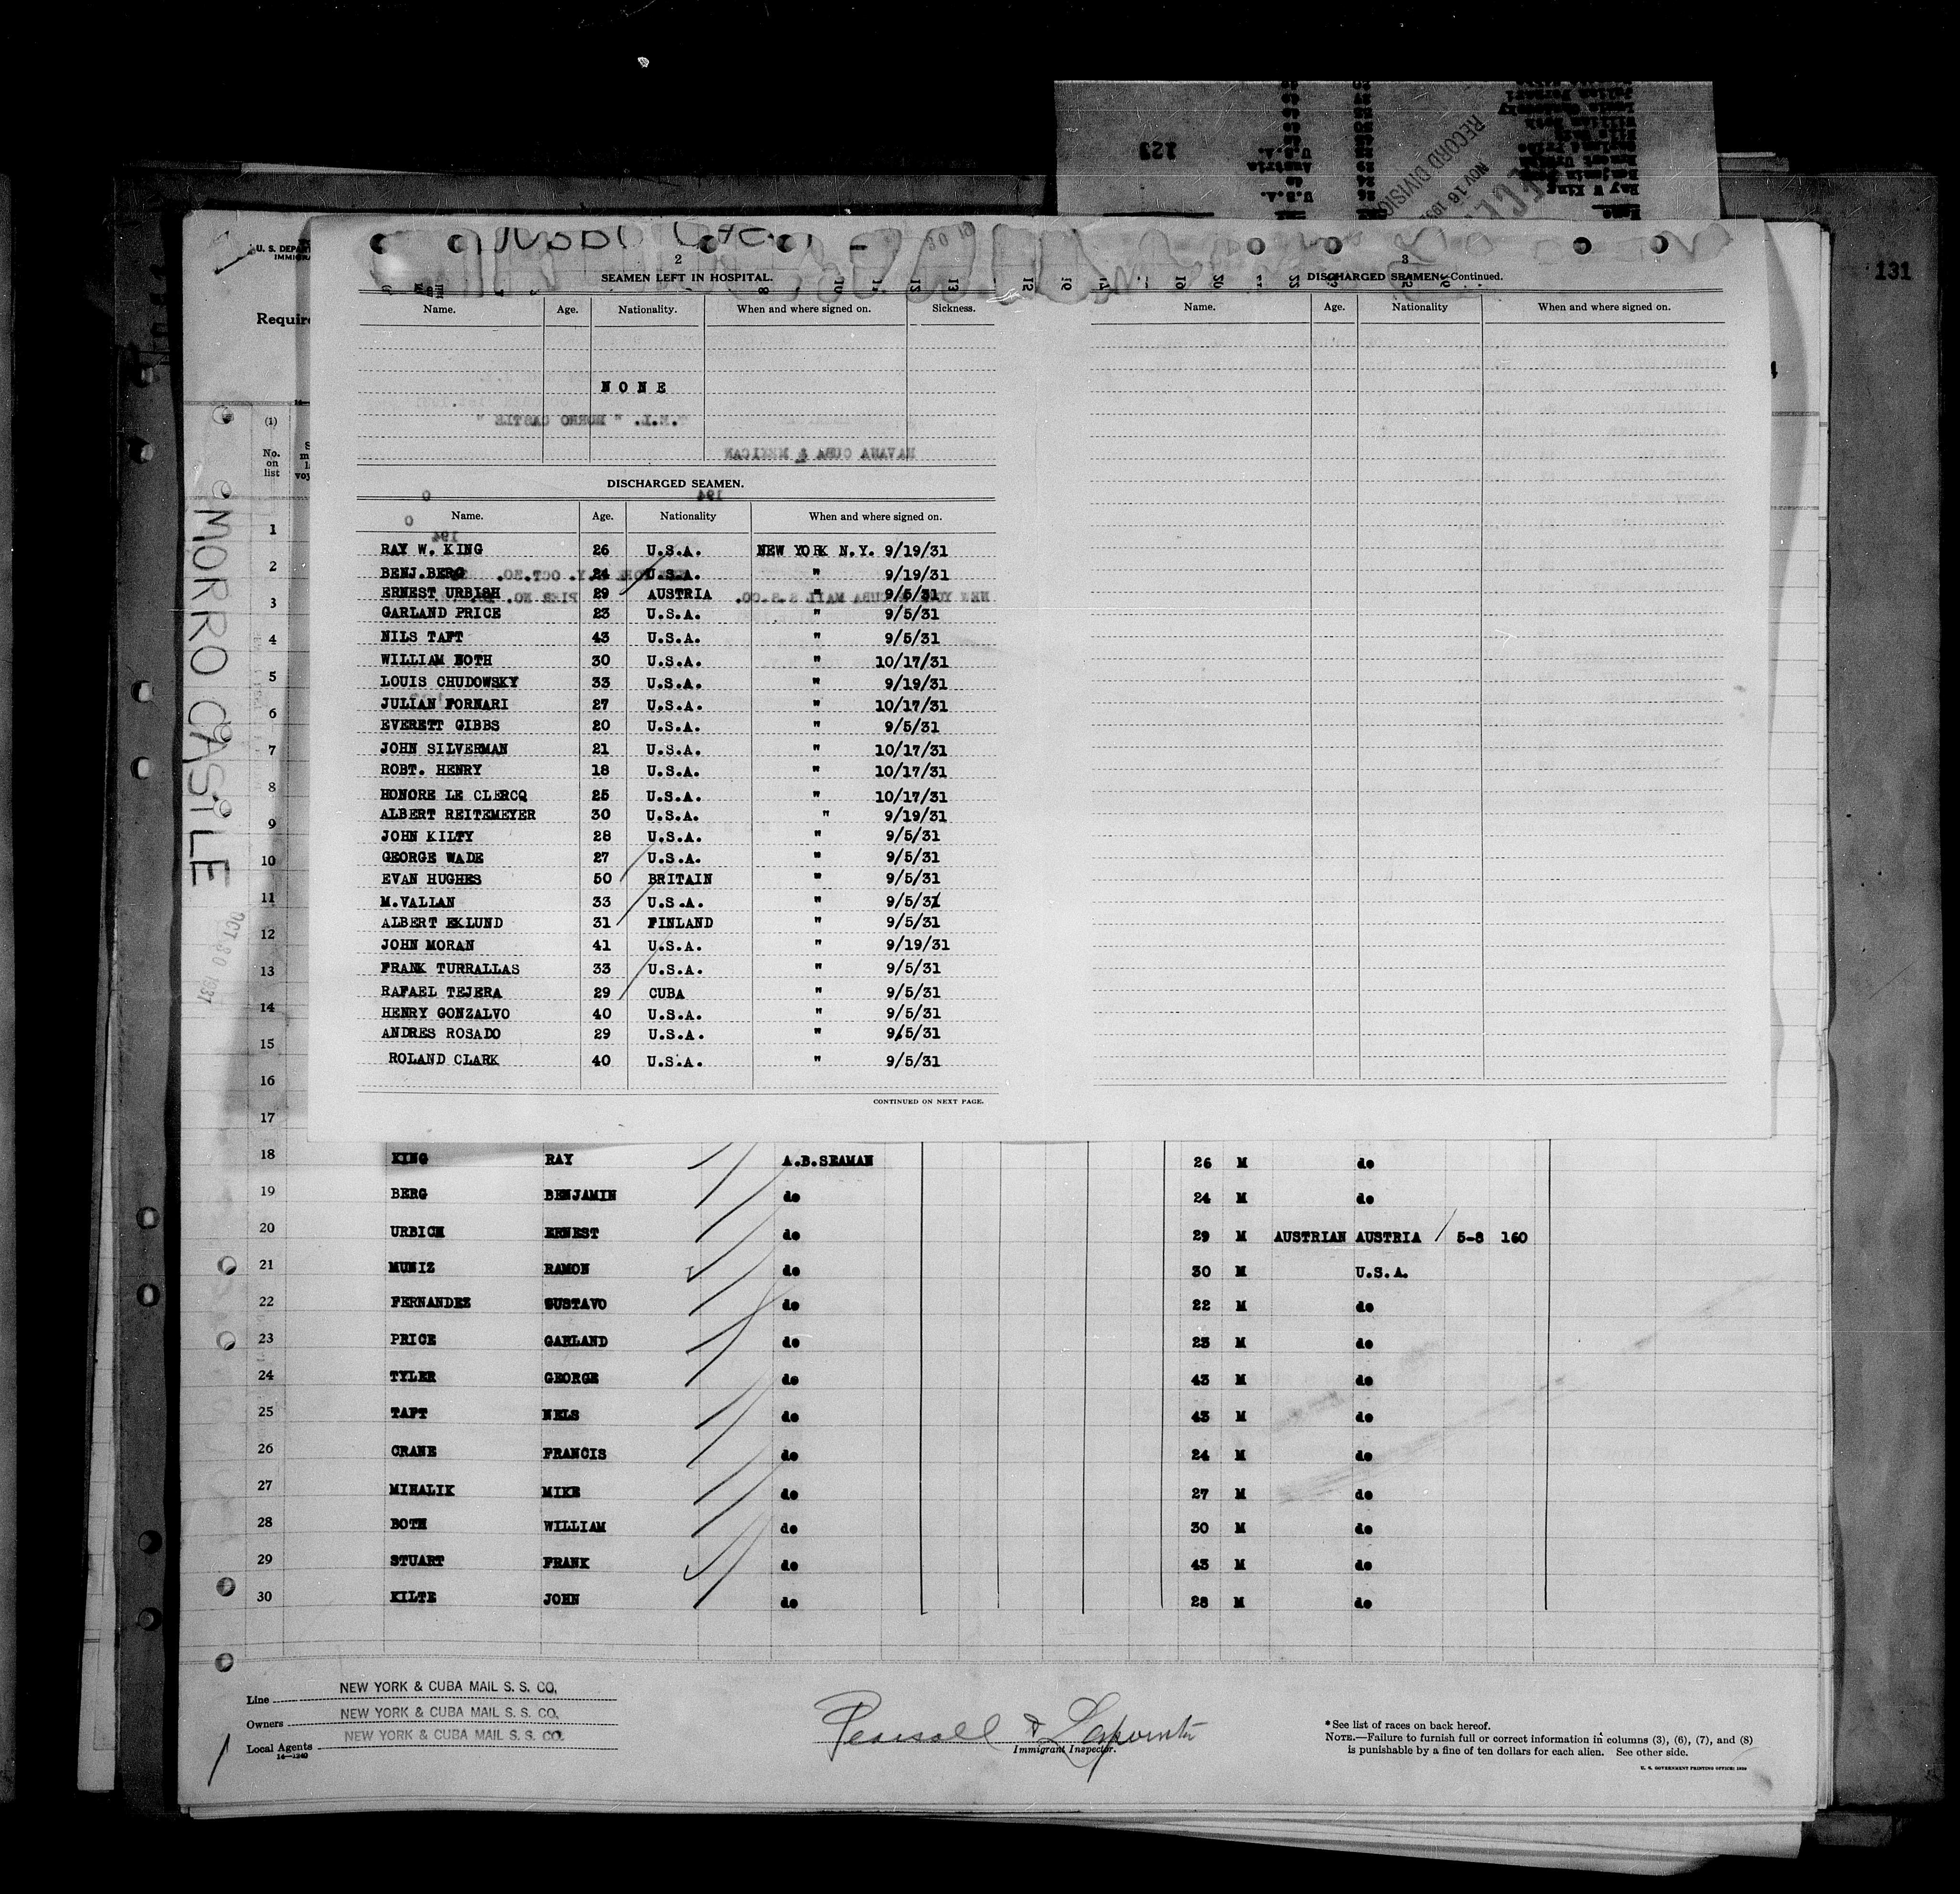 131
123
RECORD DIVISION
NOV 16 193
U. S. DEPA
IMMIGRA
Require
2
SEAMEN LEFT IN HOSPITAL.
Name. Age. Nationality. When and where signed on. Sickness.
NONE
T.E.L. " MORRO CASTLE "
HAVANA CUBA & MEXICAN
DISCHARGED SEAMEN.
Name. Age. Nationality When and where signed on.
RAY W. KING 26 U.S.A. NEW YORK N.Y. 9/19/31
BENJ.BERG 24 U.S.A. " 9/19/31
ERNEST URBISH 29 AUSTRIA " 9/5/31
GARLAND PRICE 23 U.S.A. " 9/5/31
NILS TAFT 43 U.S.A. " 9/5/31
WILLIAM BOTH 30 U.S.A. " 10/17/31
LOUIS CHUDOWSKY 33 U.S.A. " 9/19/31
JULIAN FORNARI 27 U.S.A. " 10/17/31
EVERETT GIBBS 20 U.S.A. " 9/5/31
JOHN SILVERMAN 21 U.S.A. " 10/17/31
ROBT. HENRY 18 U.S.A. " 10/17/31
HONORE LE CLERCQ 25 U.S.A. " 10/17/31
ALBERT REITEMEYER 30 U.S.A. " 9/19/31
JOHN KILTY 28 U.S.A. " 9/5/31
GEORGE WADE 27 U.S.A. " 9/5/31
EVAN HUGHES 50 BRITAIN " 9/5/31
M.VALLAN 33 U.S.A. " 9/5/31
ALBERT EKLUND 31 FINLAND " 9/5/31
JOHN MORAN 41 U.S.A. " 9/19/31
FRANK TURRALLAS 33 U.S.A. " 9/5/31
RAFAEL TEJERA 29 CUBA " 9/5/31
HENRY GONZALVO 40 U.S.A. " 9/5/31
ANDRES ROSADO 29 U.S.A. " 9/5/31
ROLAND CLARK 40 U.S.A. " 9/5/31
CONTINUED ON NEXT PAGE.
3
DISCHARGED SEAMEN—Continued.
Name. Age. Nationality When and where signed on.
(1)
No. on list
1
2
3
4
5
6
7
8
9
10
11
12
13
14
15
16
17
MORRO CASTLE
OCT 30 1931
18 KING RAY A.B.SEAMAN 26 M do
19 BERG BENJAMIN do 24 M do
20 URBICH ERNEST do 29 M AUSTRIAN AUSTRIA 5-8 160
21 MUNIZ RAMON do 30 M U.S.A.
22 FERNANDEZ GUSTAVO do 22 M do
23 PRICE GARLAND do 23 M do
24 TYLER GEORGE do 43 M do
25 TAFT NELS do 43 M do
26 CRANE FRANCIS do 24 M do
27 MIHALIK MIKE do 27 M do
28 BOTH WILLIAM do 30 M do
29 STUART FRANK do 43 M do
30 KILTE JOHN do 28 M do
Line NEW YORK & CUBA MAIL S. S. CO.
Owners NEW YORK & CUBA MAIL S. S. CO.
Local Agents NEW YORK & CUBA MAIL S. S. CO.
14—1240
Pearsall & Lapointe
Immigrant Inspector.
*See list of races on back hereof.
NOTE.—Failure to furnish full or correct information in columns (3), (6), (7), and (8)
is punishable by a fine of ten dollars for each alien. See other side.
U. S. GOVERNMENT PRINTING OFFICE: 1930